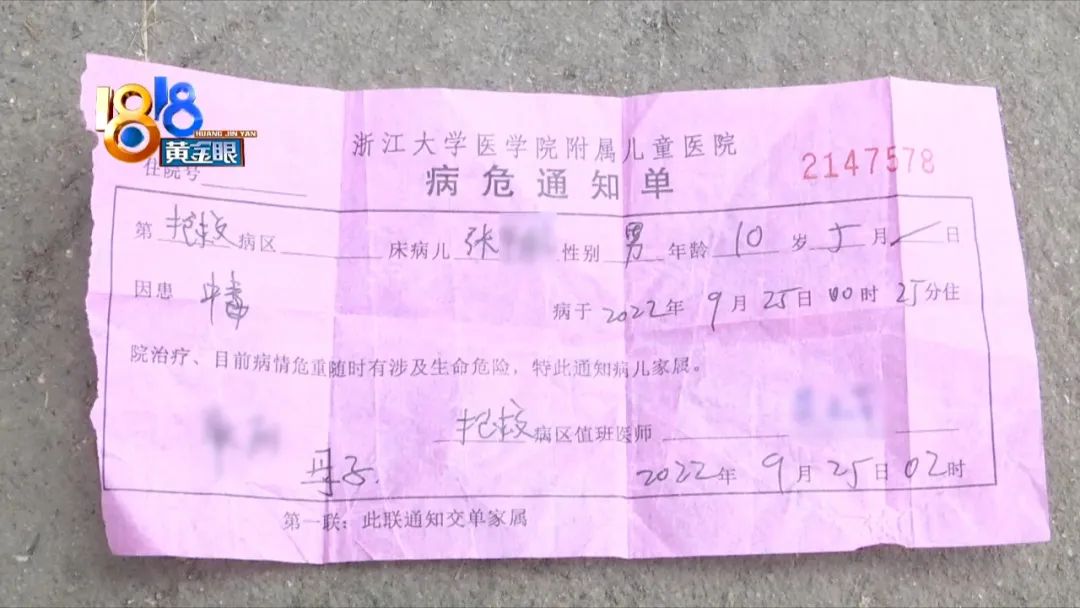 1818
HUANG JIN YAN
黄金眼
浙江大学医学院附属儿童医院
2147578
病危通知单
住院号
第 抢救 病区 床病儿 张 性别 男 年龄 10 岁 5 月 / 日
因患 中毒 病于 2022年 9月 25日 00时 25分住
院治疗、目前病情危重随时有涉及生命危险，特此通知病儿家属。
抢救 病区值班医师
母子. 2022年 9月 25日 02时
第一联：此联通知交单家属